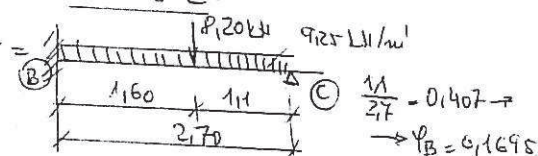 8,20kN
9,25 kN/m'
=
B
C
1,60
1,1
2,70
1,1
2,7
= 0,407 →
→ φB = 0,1695